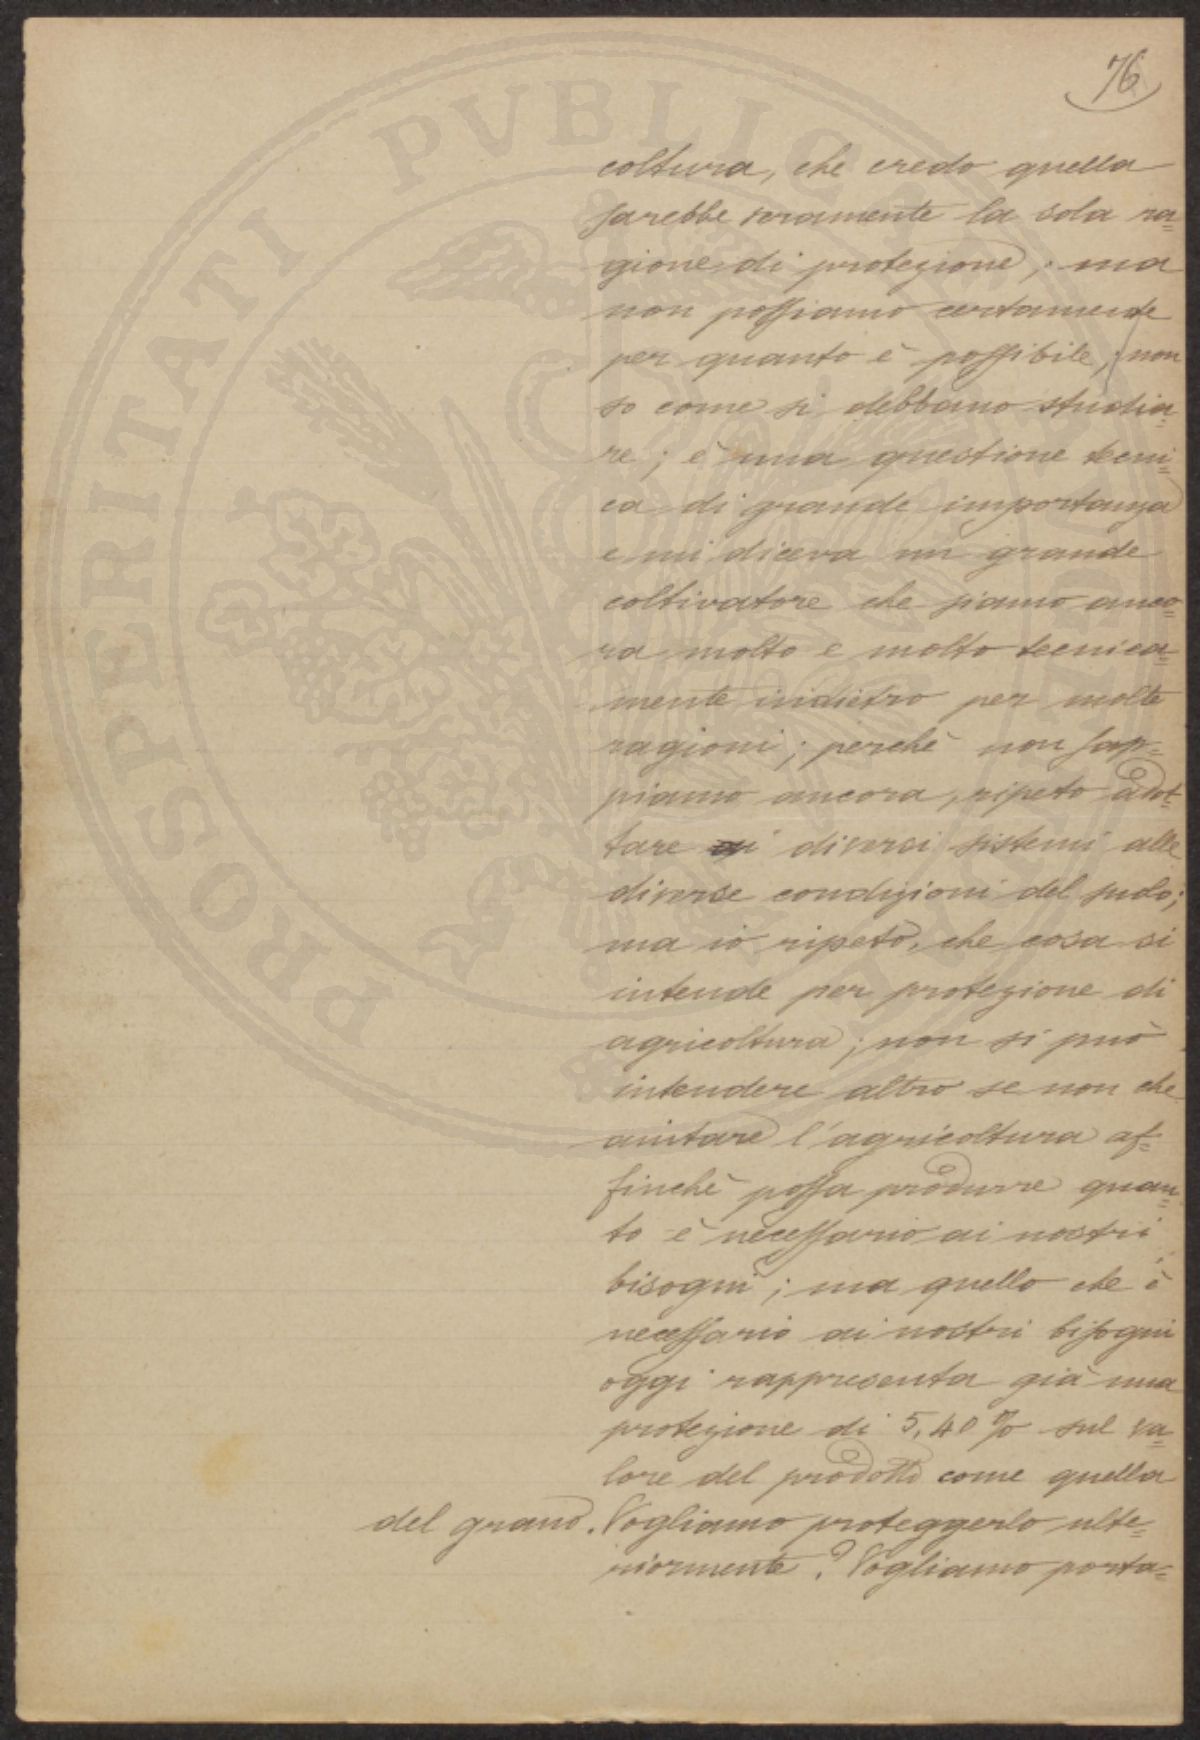 76
coltura, che credo quella
sarebbe veramente la sola ra=
gione di protezione, ma
non possiamo certamente
per quanto è possibile, non
so come si debbano studia=
re; è una questione tecni=
ca di grande importanza
e mi diceva un grande
coltivatore che siamo anco=
ra molto e molto tecnica=
mente indietro per molte
ragioni; perchè non sap=
piamo ancora, ripeto adot=
tare i diversi sistemi alle
diverse condizioni del suolo;
ma io ripeto, che cosa si
intende per protezione di
agricoltura; non si può
intendere altro se non che
aiutare l'agricoltura af=
finchè possa produrre quan=
to è necessario ai nostri
bisogni; ma quello che è
necessario ai nostri bisogni
oggi rappresenta già una
protezione di 5,40 % sul va=
lore del prodotto come quella
del grano. Vogliamo proteggerlo ulte=
riormente? Vogliamo porta=
PROSPERITATI PVBLICAE